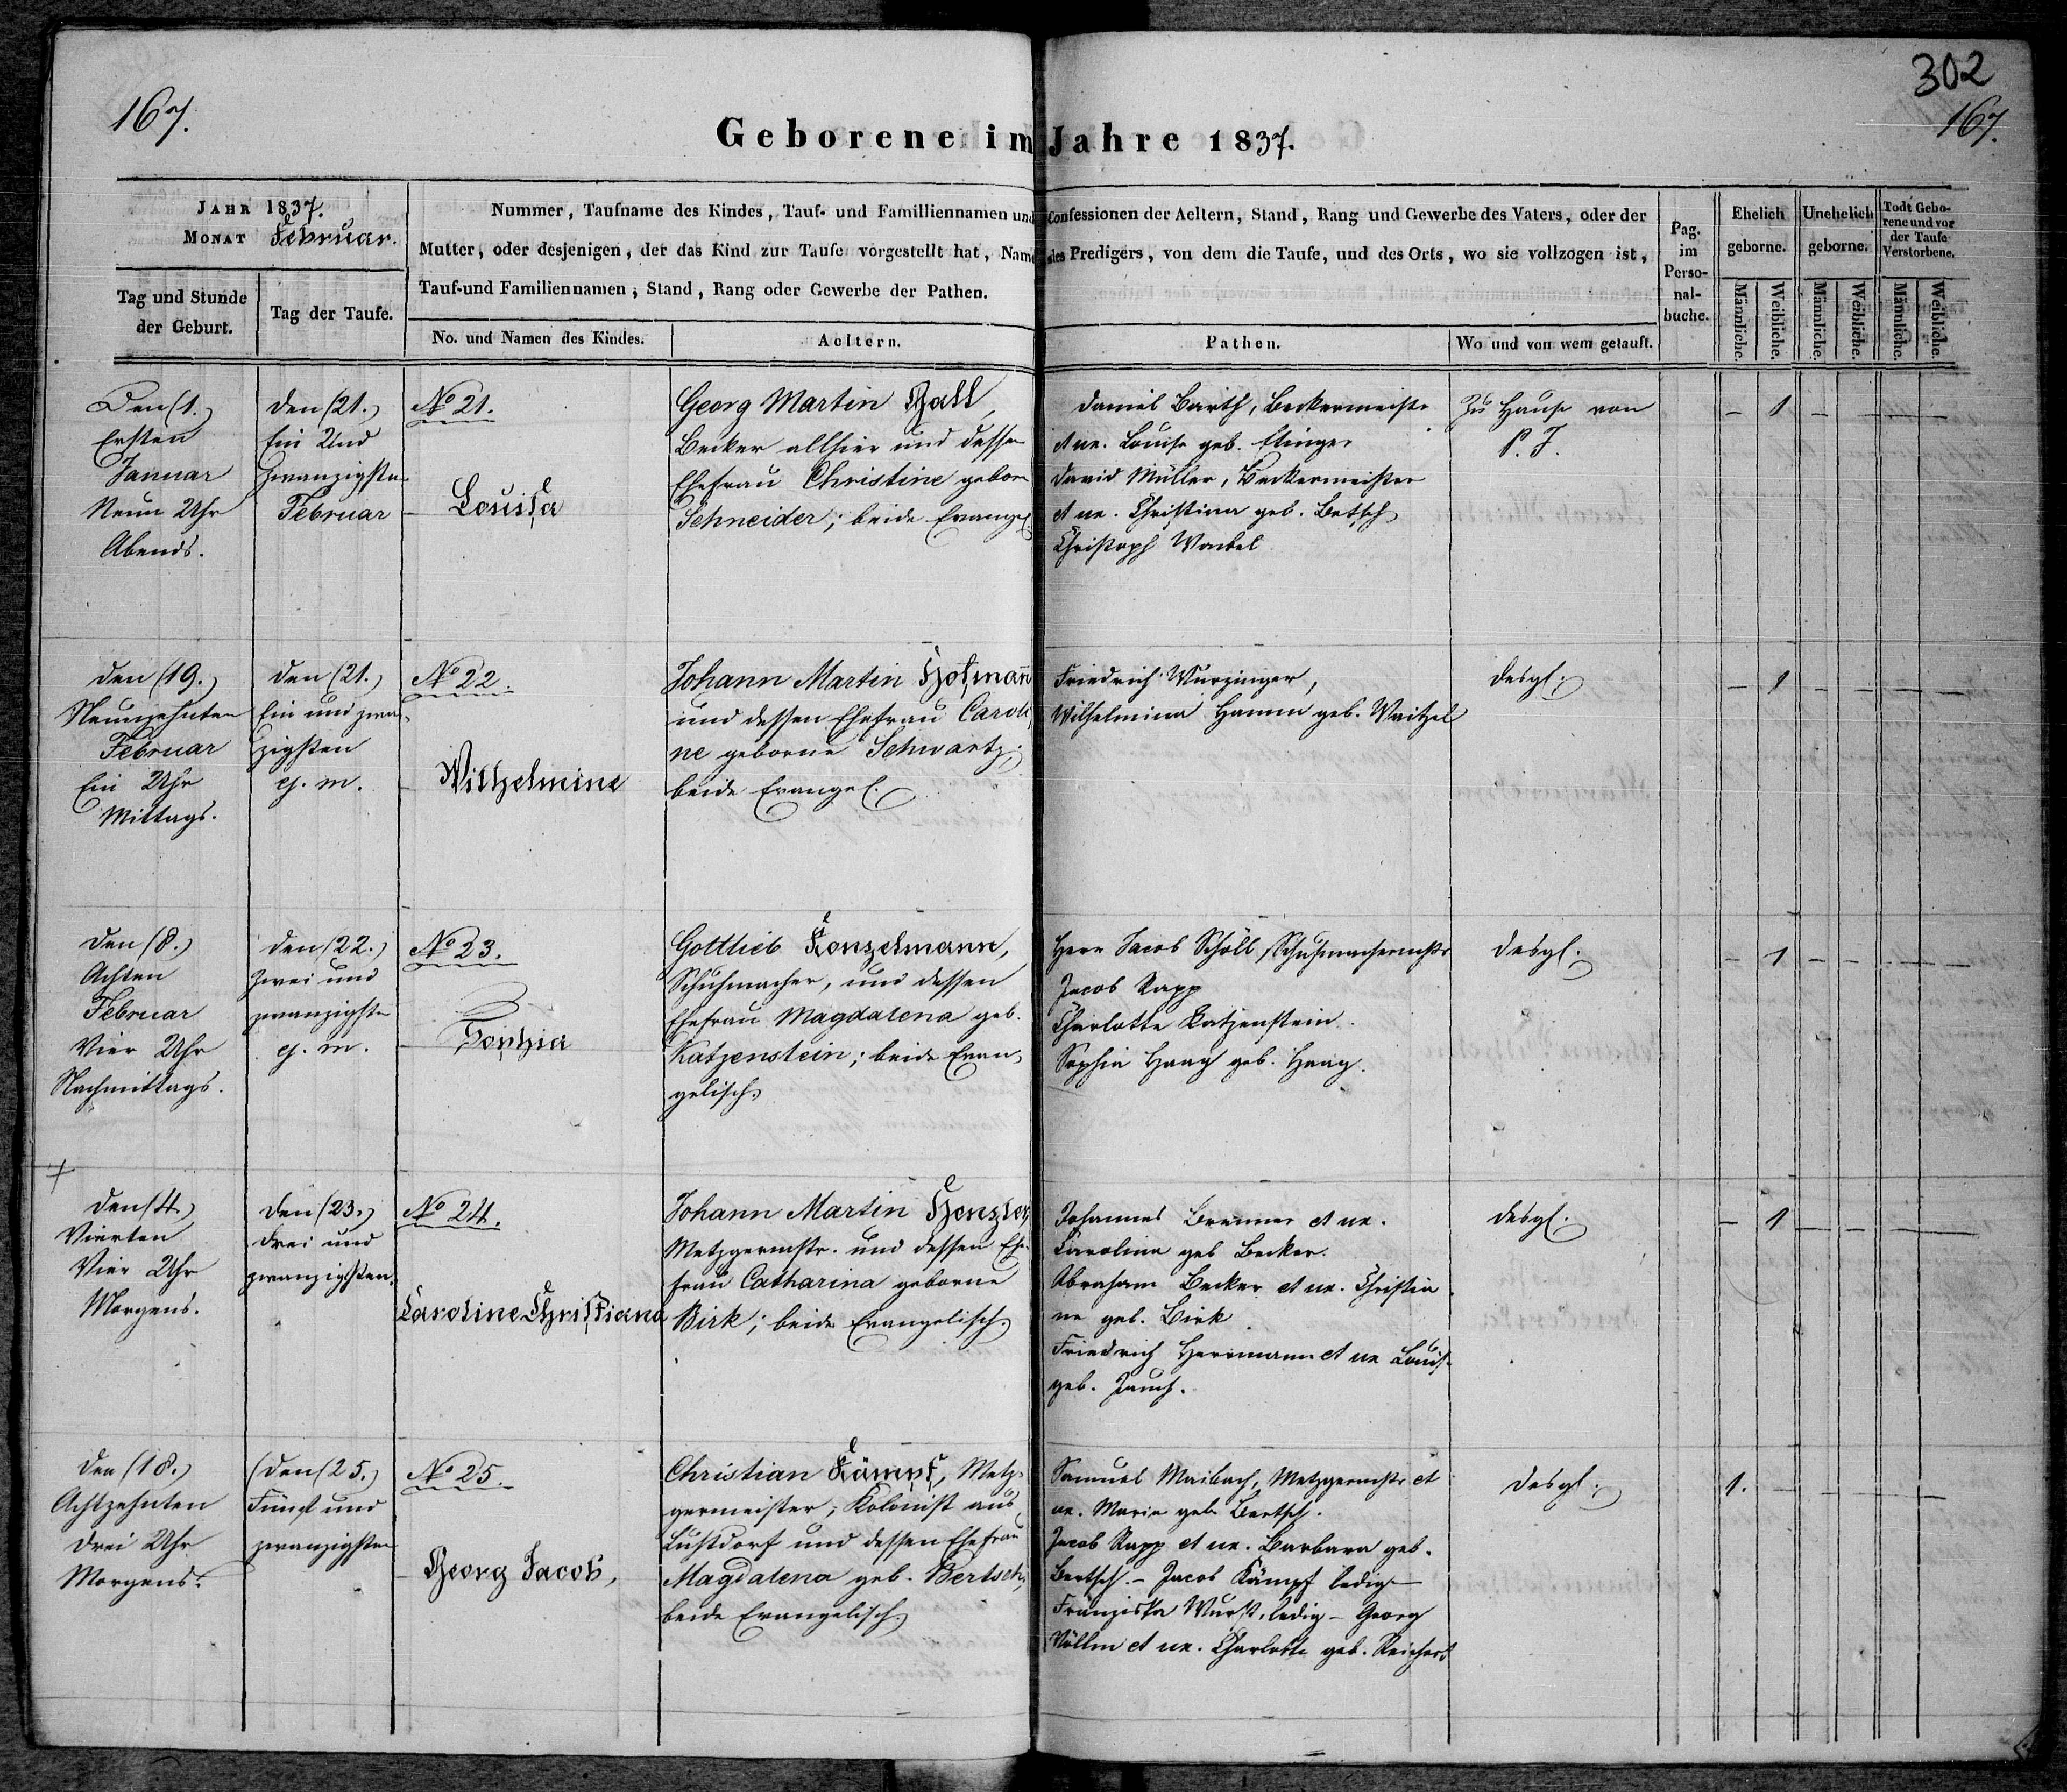 302
167.
167.
Geborene im Jahre 1837.
JAHR 1837.
MONAT Februar.
Tag und Stunde
der Geburt.
Tag der Taufe.
Nummer, Taufname des Kindes, Tauf- und Familliennamen und Confessionen der Aeltern, Stand, Rang und Gewerbe des Vaters, oder der
Mutter, oder desjenigen, der das Kind zur Taufe vorgestellt hat, Name des Predigers, von dem die Taufe, und des Orts, wo sie vollzogen ist,
Tauf-und Familiennamen, Stand, Rang oder Gewerbe der Pathen.
No. und Namen des Kindes.
Aeltern.
Pathen.
Wo und von wem getauft.
Pag.
im
Perso-
nal-
buche.
Ehelich
geborne.
Unehelich
geborne.
Todt Gebo-
rene und vor
der Taufe
Verstorbene.
Männliche.
Weibliche.
Männliche.
Weibliche.
Männliche.
Weibliche.
Den (1.)
Ersten
Januar
Neun Uhr
Abends.
den (21.)
Ein Und
zwanzigsten
Februar
No 21.
Louisa
Georg Martin Gall,
Becker allhier und dessen
Ehefrau Christine geborn
Schneider; beide Evangel.
Daniel Barth, Beckermeister
et ux. Louise geb. Etinger
David Müller, Beckermeister
et ux. Christina geb. Betsch
Christoph Waibel
Zu Hause von
P. F.
- 1 -
den (19.)
Neunzehnten
Februar
Ein Uhr
Mittags.
den (21.)
Ein und zwan-
zigsten
ej. m.
No 22.
Wilhelmine
Johann Martin Hofmann
und dessen Ehefrau Caroli
ne geborne Schwartz;
beide Evangel.
Friedrich Wurzinger,
Wilhelmina Hamm geb. Waitzel
desgl.
- 1 - - - -
den (8.)
Achten
Februar
Vier Uhr
Nachmittags.
den (22.)
Zwei und
zwanzigsten
ej. m.
No 23.
Sophia
Gottlieb Konzelmann,
Schuhmacher, und dessen
Ehefrau Magdalena geb.
Katzenstein; beide Evan-
gelisch.
Herr Jacob Schöll Schuhmachermstr
Jacob Rapp
Charlotte Katzenstein.
Sophia Haag geb. Haag.
desgl.
- 1 - - - -
den (4.)
Vierten
Vier Uhr
Morgens.
den (23.)
drei und
zwanzigsten.
No 24.
Caroline Christiana
Johann Martin Henzler,
Metzgermstr. und dessen Ehe-
frau Catharina geborne
Birk; beide Evangelisch.
Johannes Brenner et ux.
Carolina geb Becker.
Abraham Becker et ux. Christia
ne geb. Birk
Friedrich Herrmann et ux Louis-
geb. Jauch.
desgl.
- 1 - - - -
den (18.)
Achtzehnten
drei Uhr
Morgens.
(den (25.)
Fünf und
zwanzigsten
No 25.
Georg Jacob,
Christian Kämpf, Metz-
germeister, Kolonist aus
Lustdorf und dessen Ehefrau
Magdalena geb. Bertsch,
beide Evangelisch.
Samuel Maibach, Metzgermstr et
ux. Maria geb. Bertsch.
Jacob Rapp et ux. Barbara geb.
Bertsch. - Jacob Kämpf ledig -
Franziska Wurst, ledig - Georg
et ux. Charlotte geb. Reichert
desgl.
1. - - - - -